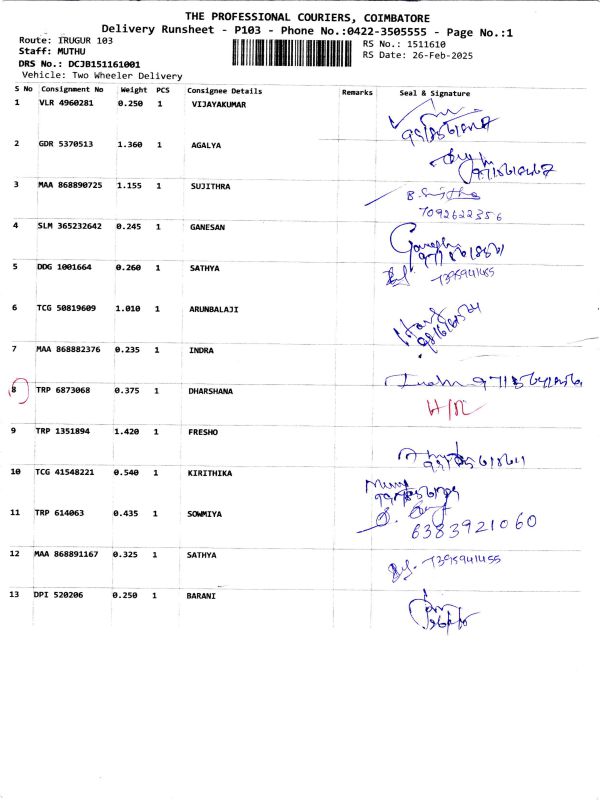 THE PROFESSIONAL COURIERS, COIMBATORE
Delivery Runsheet - P103 - Phone No.:0422-3505555 - Page No.:1
Route: IRUGUR 103 RS No.: 1511610
Staff: MUTHU RS Date: 26-Feb-2025
DRS No.: DCJB151161001
Vehicle: Two Wheeler Delivery
S No Consignment No Weight PCS Consignee Details Remarks Seal & Signature
1 VLR 4960281 0.250 1 VIJAYAKUMAR
2 GDR 5370513 1.360 1 AGALYA
3 MAA 868890725 1.155 1 SUJITHRA B. Sujitha
7092622356
4 SLM 365232642 0.245 1 GANESAN
5 DDG 1001664 0.260 1 SATHYA 7395941455
6 TCG 50819609 1.010 1 ARUNBALAJI
7 MAA 868882376 0.235 1 INDRA
8 TRP 6873068 0.375 1 DHARSHANA
9 TRP 1351894 1.420 1 FRESHO
10 TCG 41548221 0.540 1 KIRITHIKA
11 TRP 614063 0.435 1 SOWMIYA
6383921060
12 MAA 868891167 0.325 1 SATHYA 7395941455
13 DPI 520206 0.250 1 BARANI